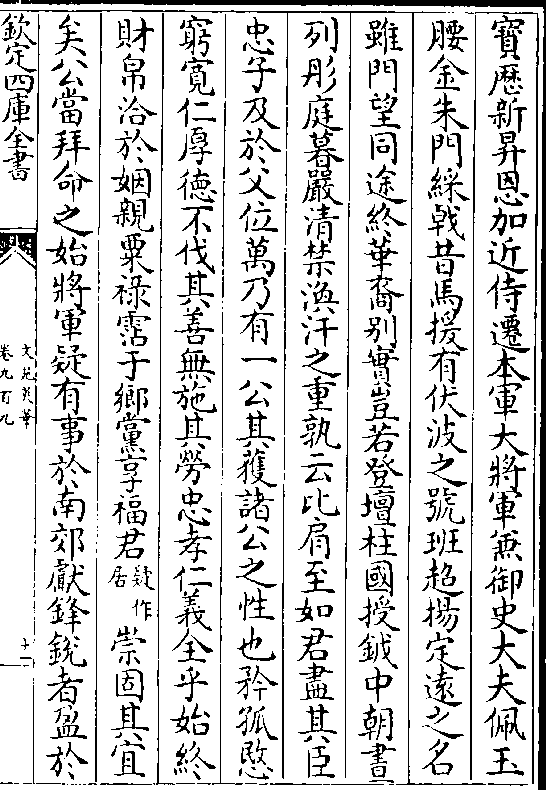 寳歴新昇恩加近侍遷本軍大將軍兼御史大夫佩玉
腰金朱門綵戟昔馬援有伏波之號班超揚定遠之名
雖門望同途終華裔別實豈若登壇柱國授鉞中朝書
列彤庭暮嚴清禁渙汗之重孰云比肩至如君盡其臣
忠子及於父位萬乃有一公其蕴諸公之性也矜孤愍
窮寛仁厚德不伐其善無施其勞忠孝仁義全乎始終
財帛洽於姻親粟禄霑于鄉黨享福君疑作居崇固其宜
矣公當拜命之始將軍疑有事於南郊獻鋒銳者盈於
欽定四庫全書
文苑英華
卷九百九
十一